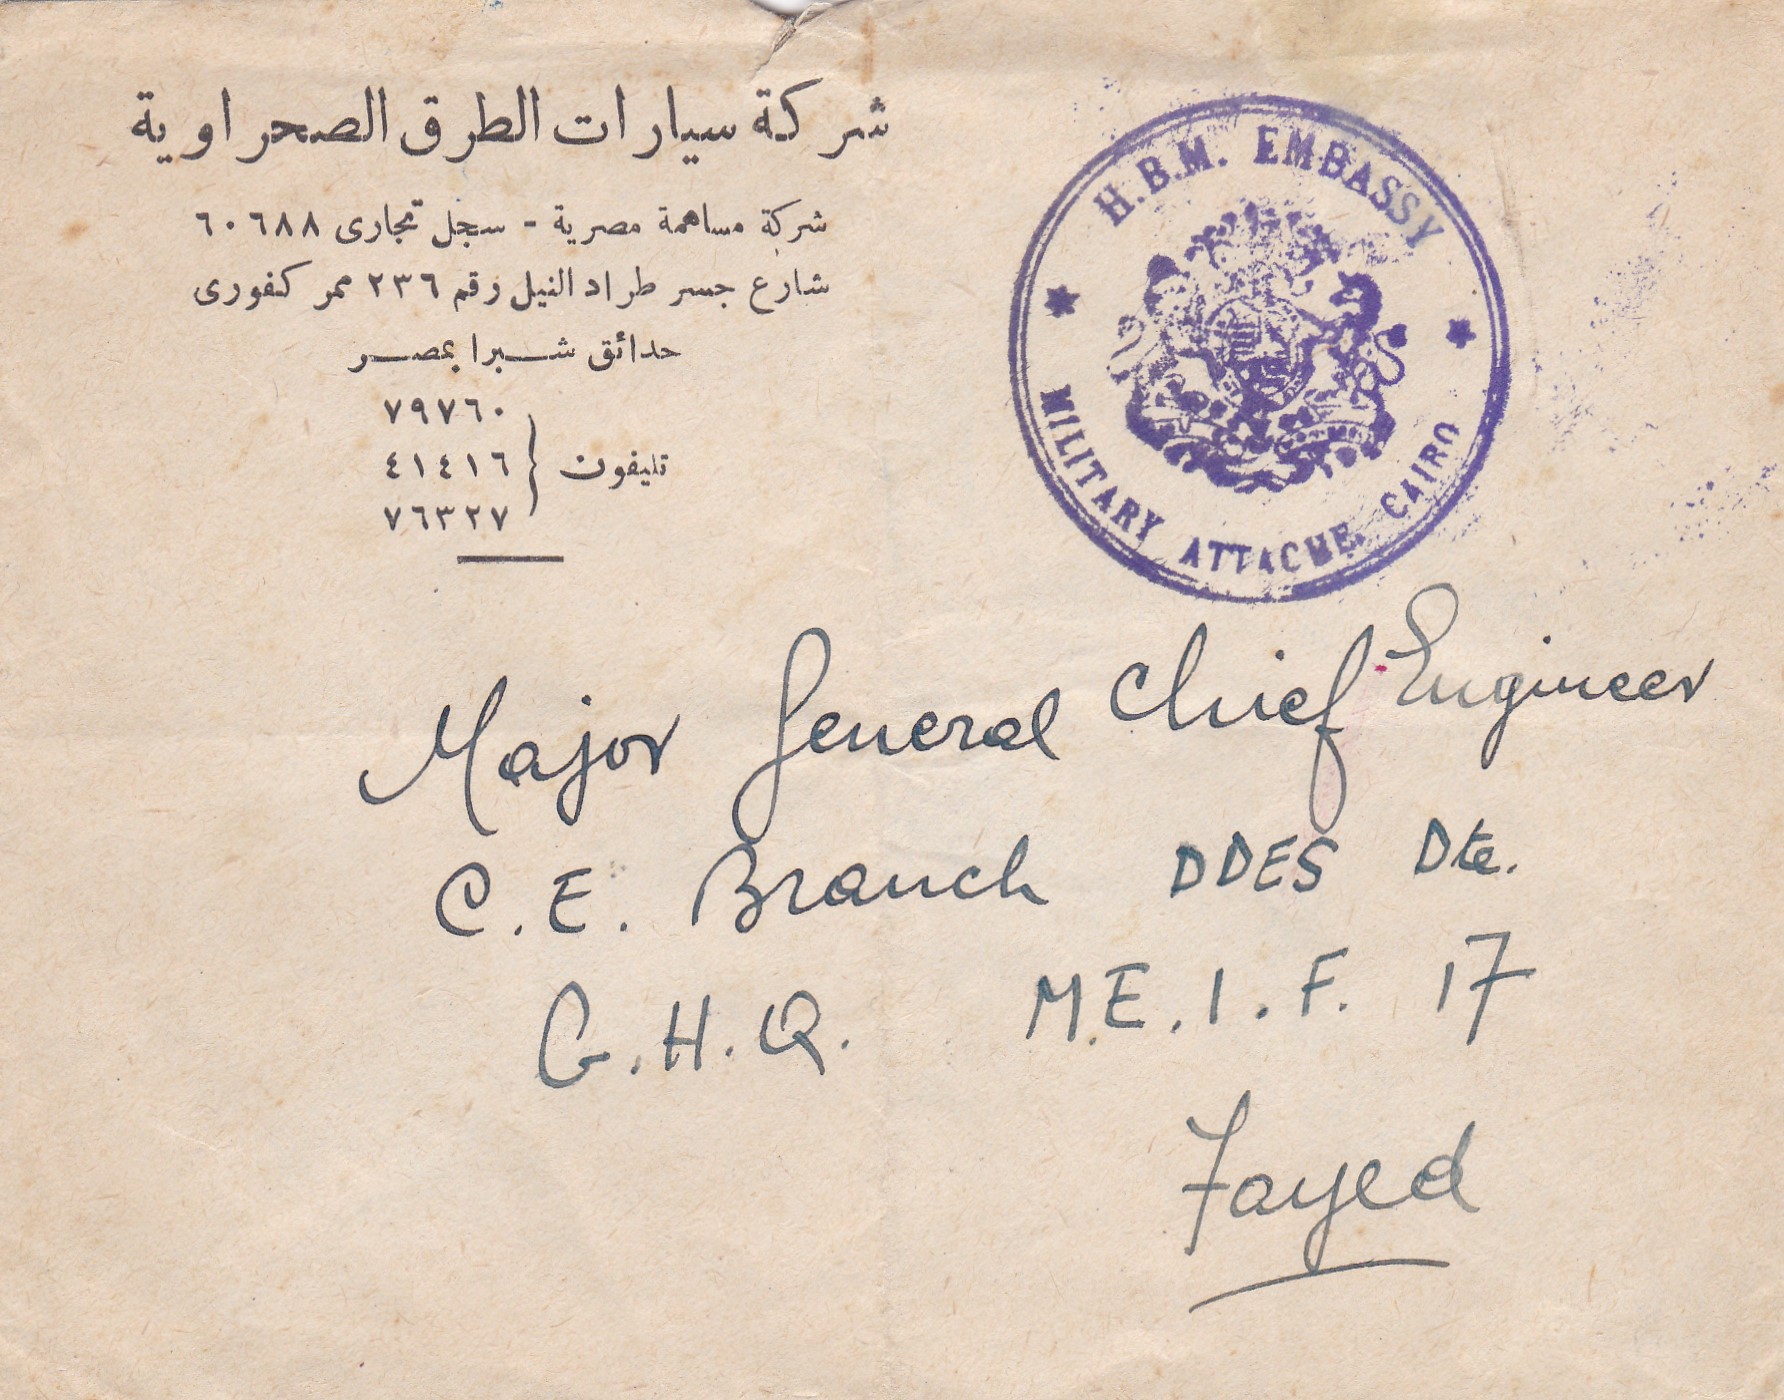 شركة سيارات الطرق الصحراوية
شركة مساهمة مصرية - سجل تجارى ٦٠٦٨٨
شارع جسر طراد النيل رقم ٢٣٦ ممر كنفورى
حدائق شبرا بمصر
تليفون
٧٩٧٦٠
٤١٤١٦
٧٦٣٢٧
H.B.M. EMBASSY
MILITARY ATTACHE, CAIRO
Major General Chief Engineer
C.E. Branch DDES Dte.
G.H.Q. M.E.L.F. 17
Fayed